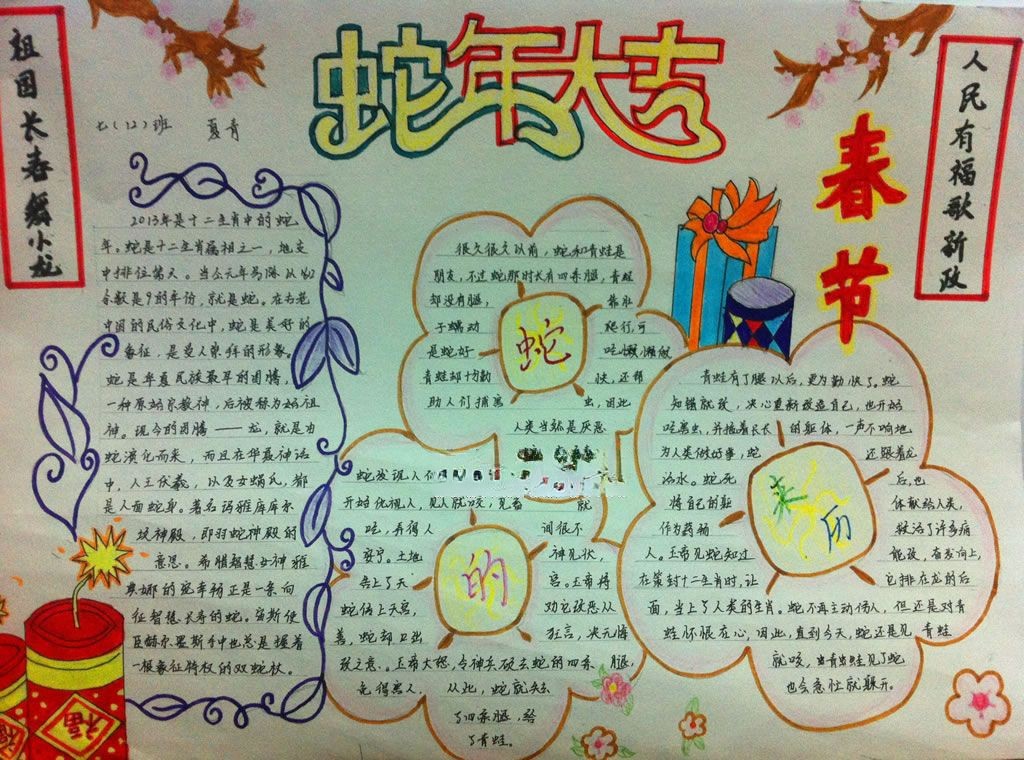 祖国长春舞小龙
七(12)班 夏青
蛇年大吉
春节
人民有福歌新政
2013年是十二生肖中的蛇
年。蛇是十二生肖属相之一，地支
中排位第六。当公元年号除以12
余数是9的年份，就是蛇。在古老
中国的民俗文化中，蛇是美好的
象征，是受人崇拜的形象。
蛇是华夏民族最早的图腾，
一种原始宗教神，后被称为始祖
神。现今的图腾——龙，就是由
蛇演化而来，而且在华夏神话
中，人王伏羲，以及女娲氏，都
是人面蛇身。著名玛雅库库尔
坎神殿，即羽蛇神殿的
意思。希腊智慧女神雅
典娜的宠幸物正是一条向
征智慧长寿的蛇。宙斯使
臣赫尔墨斯手中也总是握着
一根象征特权的双蛇杖。
福
很久很久以前，蛇和青蛙是
朋友，不过蛇那时长有四条腿，青蛙
却没有腿， 靠肚
子蠕动 爬行，可
是蛇好 吃懒做
青蛙却十分勤 快，还帮
助人们捕害 虫，因此
人类当然是厌恶
蛇
蛇发现人们
开始仇视人，见人就咬，见畜 就
吃，弄得人 间很不
安宁。土地 神见状
告上了天 宫。玉帝将
蛇传上天宫， 劝它改恶从
善，蛇却口出 狂言，决无悔
改之意。玉帝大怒，令神兵砍去蛇的四条 腿，
免得害人。 从此，蛇就失去
了四条腿，给
了青蛙。
的
青蛙有了腿以后，更为勤快了。蛇
知错就改，决心重新改造自己，也开始
吃害虫，并拖着长长 的躯体，一声不响地
为人类做好事，蛇 还跟着龙
治水。蛇死 后，也
将自己的躯 体献给人类，
作为药物 救治了许多病
人。玉帝见蛇知过 能改，奋发向上，
在策封十二生肖时，让 它排在龙的后
面，当上了人类的生肖。蛇不再主动伤人，但还是对青
蛙怀恨在心，因此，直到今天，蛇还是见 青蛙
就咬，当青蛙见了蛇
也会急忙就躲开。
来历